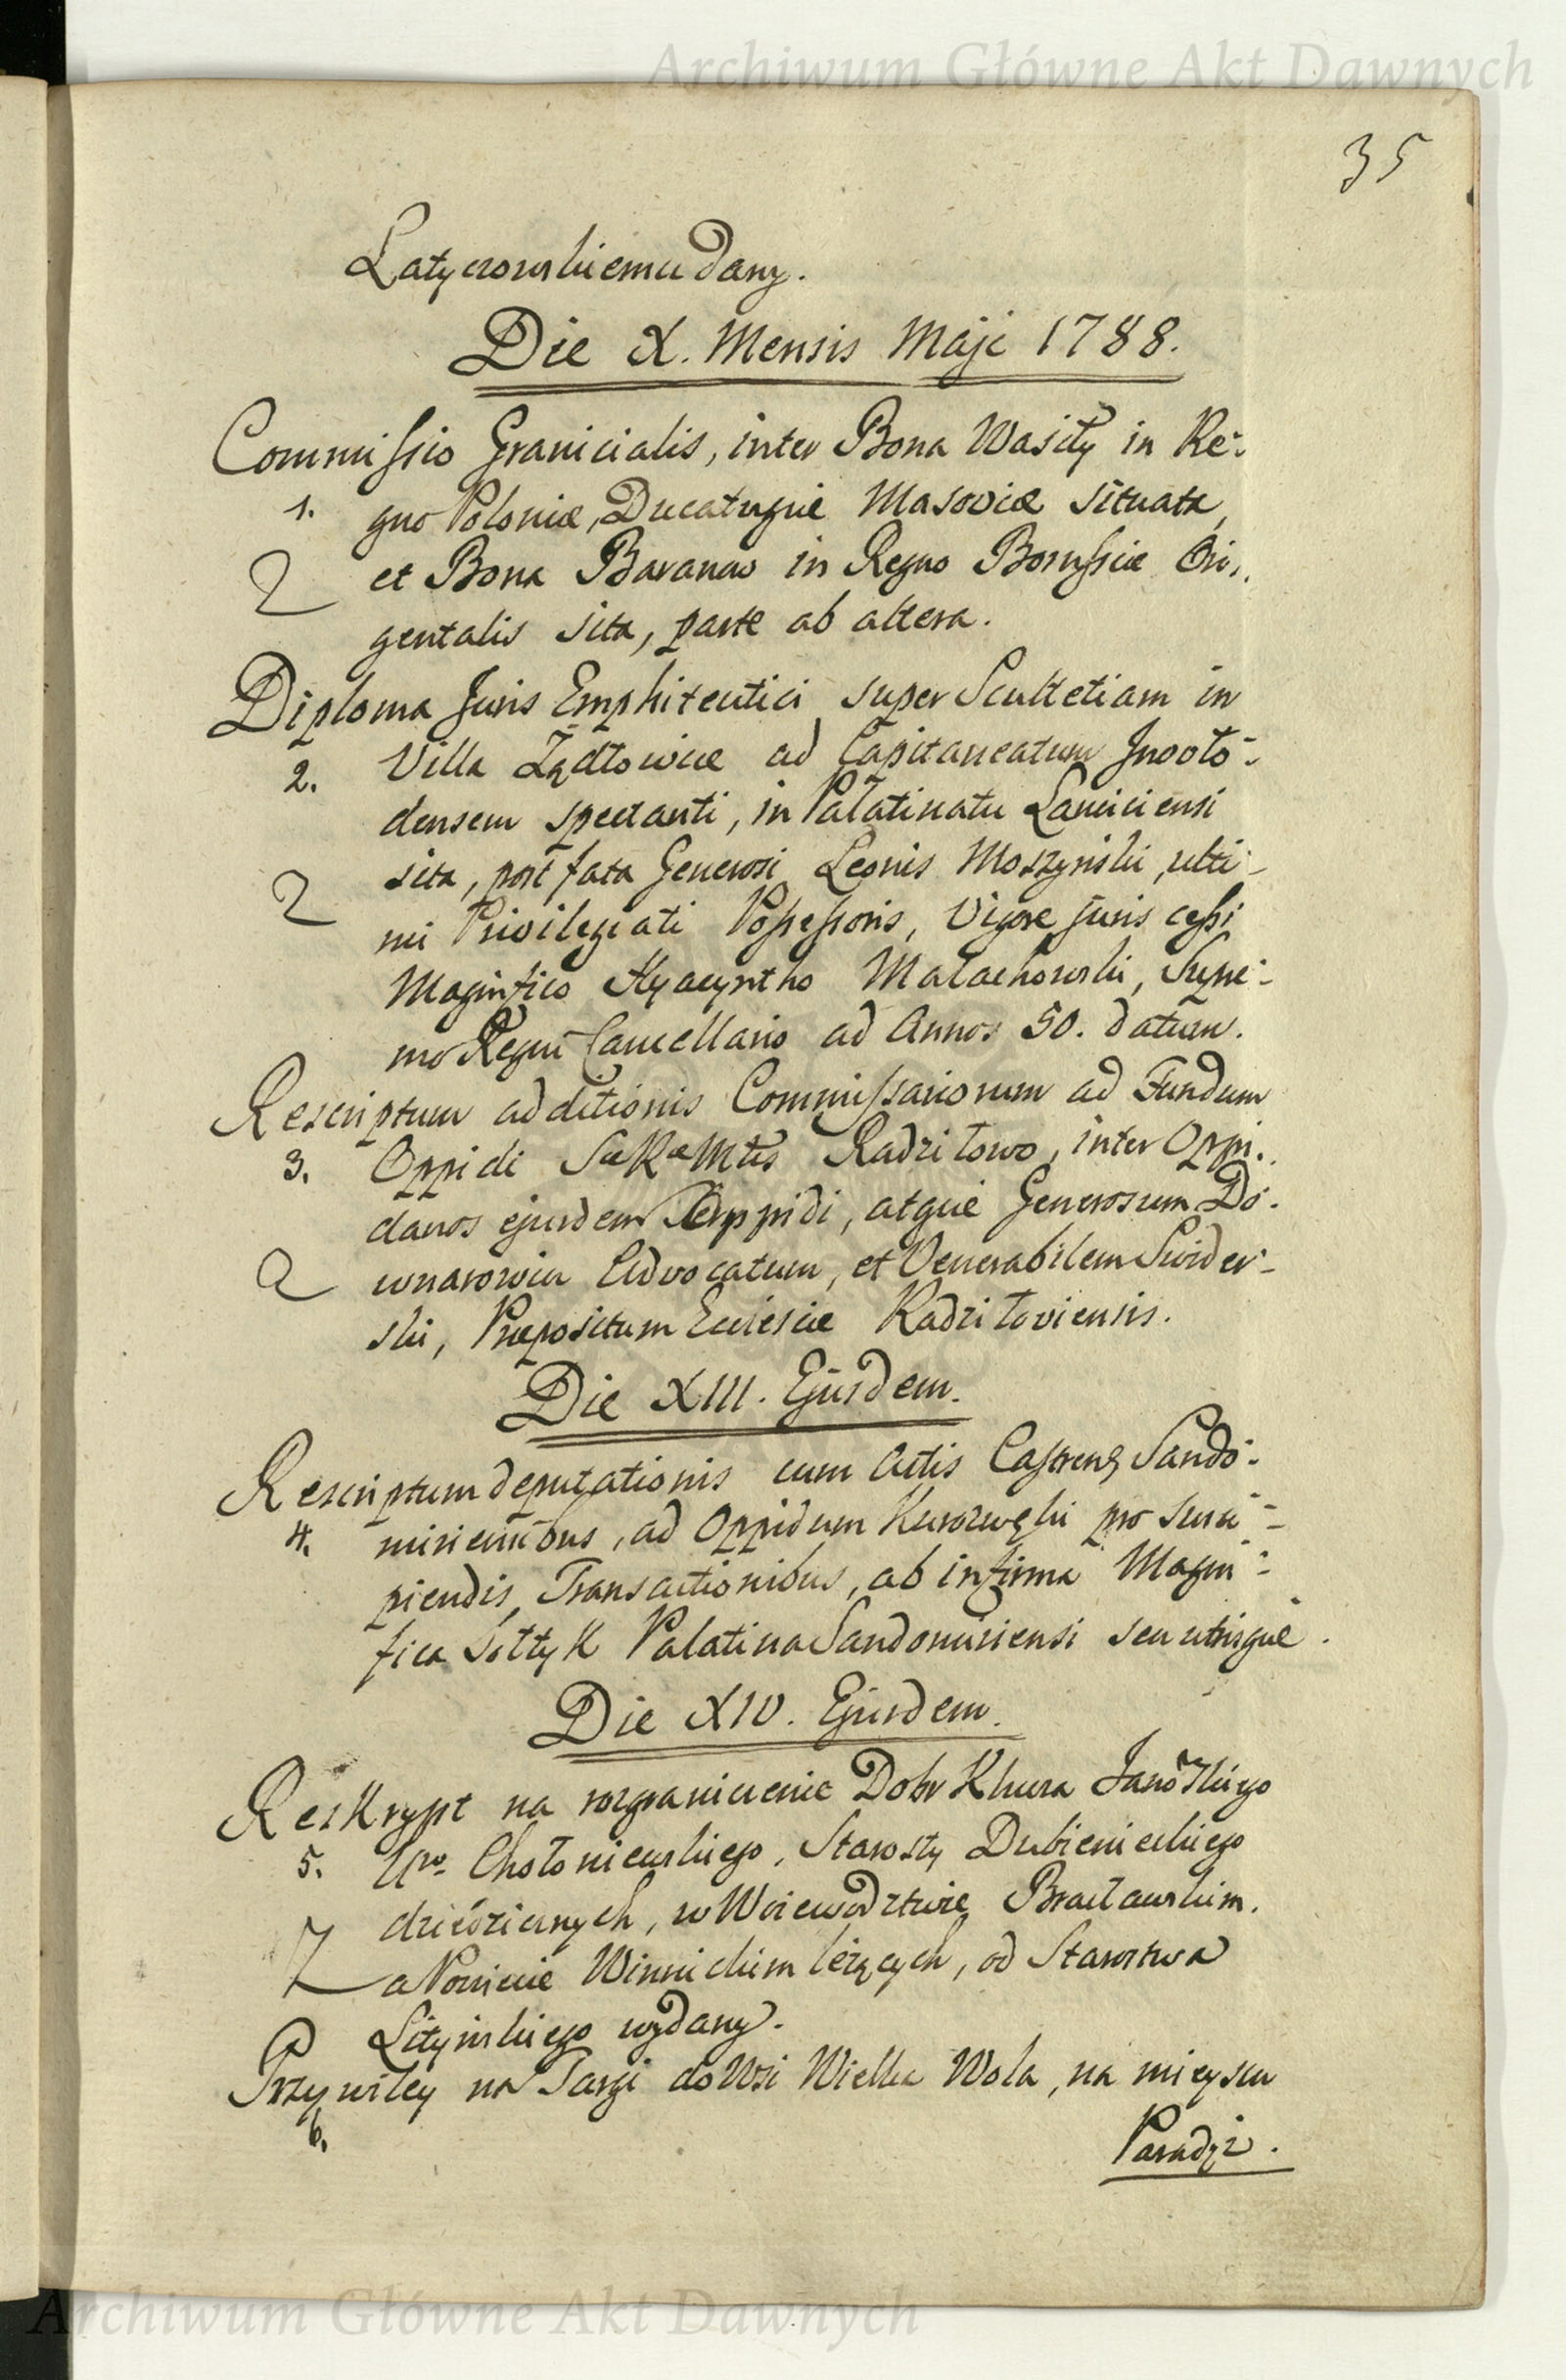 Archiwum Główne Akt Dawnych
35
Latyczowskiemu dany.
Die X. Mensis Maji 1788.
Commissio Granicialis, inter Bona Wasiły in Re:
1. gno Poloniæ, Ducatuque Masoviæ situata,
et Bona Baranow in Regno Borussiæ Ori,,
gentalis sita, parte ab altera.
Diploma Juris Emphiteutici super Scultetiam in
2. Villa Żądłowice ad Capitaneatum Inowło-
densem spectanti, in Palatinatu Lanciciensi
sita, post fata Generosi Leonis Moszyński, ulti-
mi Privilegiati Possessoris, Vigore juris cessi
Magnifico Hyacyntho Małachowski, Supre-
mo Regni Cancellario ad Annos 50. datum.
Rescriptum additionis Commissariorum ad Fundum
3. Oppidi SæRæMtis Radziłowo, inter Oppi..
danos ejusdem Oppidi, atque Generosum Do-
wnarowicz Advocatum, et Venerabilem Swider-
ski, Præpositum Ecclesiæ Radziłoviensis.
Die XIII. Ejusdem.
Rescriptum deputationis cum Actis Castrens Sando:
4. miriensibus, ad Oppidum Kurozwęki pro susci-
piendis Transactionibus, ab infirma Magni-
fica Sołtyk Palatina Sandomiriensi seu utrisque.
Die XIV. Ejusdem.
Reskrypt na rozgraniczenie Dobr Khura Janowskiego
5. Uro Chołoniewskiego, Starosty Dubienieckiego
dziedzicznych, w Woiewodztwie Bracławskim.
a Powiecie Winnickim leżących, od Starostwa
Lityńskiego wydany.
Przywiley na Targi do Wsi Wielka Wola, na mieyscu
6.
Paradyż.
Archiwum Główne Akt Dawnych